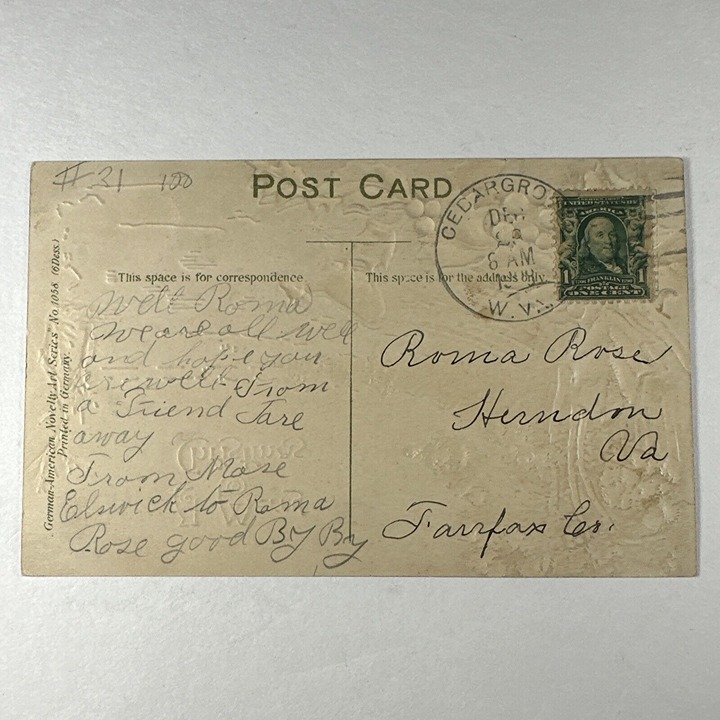 # 31 100
POST CARD
CEDARGRO
DEC
6 AM
W. VA.
UNITED STATES OF
AMERICA
1 FRANKLIN 1
POSTAGE
ONE CENT
German-American Novelty Art Series" No 1058 (6Dess.)
Printed in Germany.
This space is for correspondence
well Roma
we are all well
and hope you
are well From
a Friend Fare
away
From Mose
Elswick to Roma
Rose good By By
This space is for the address only.
Roma Rose
Herndon
Va
Fairfax Co.